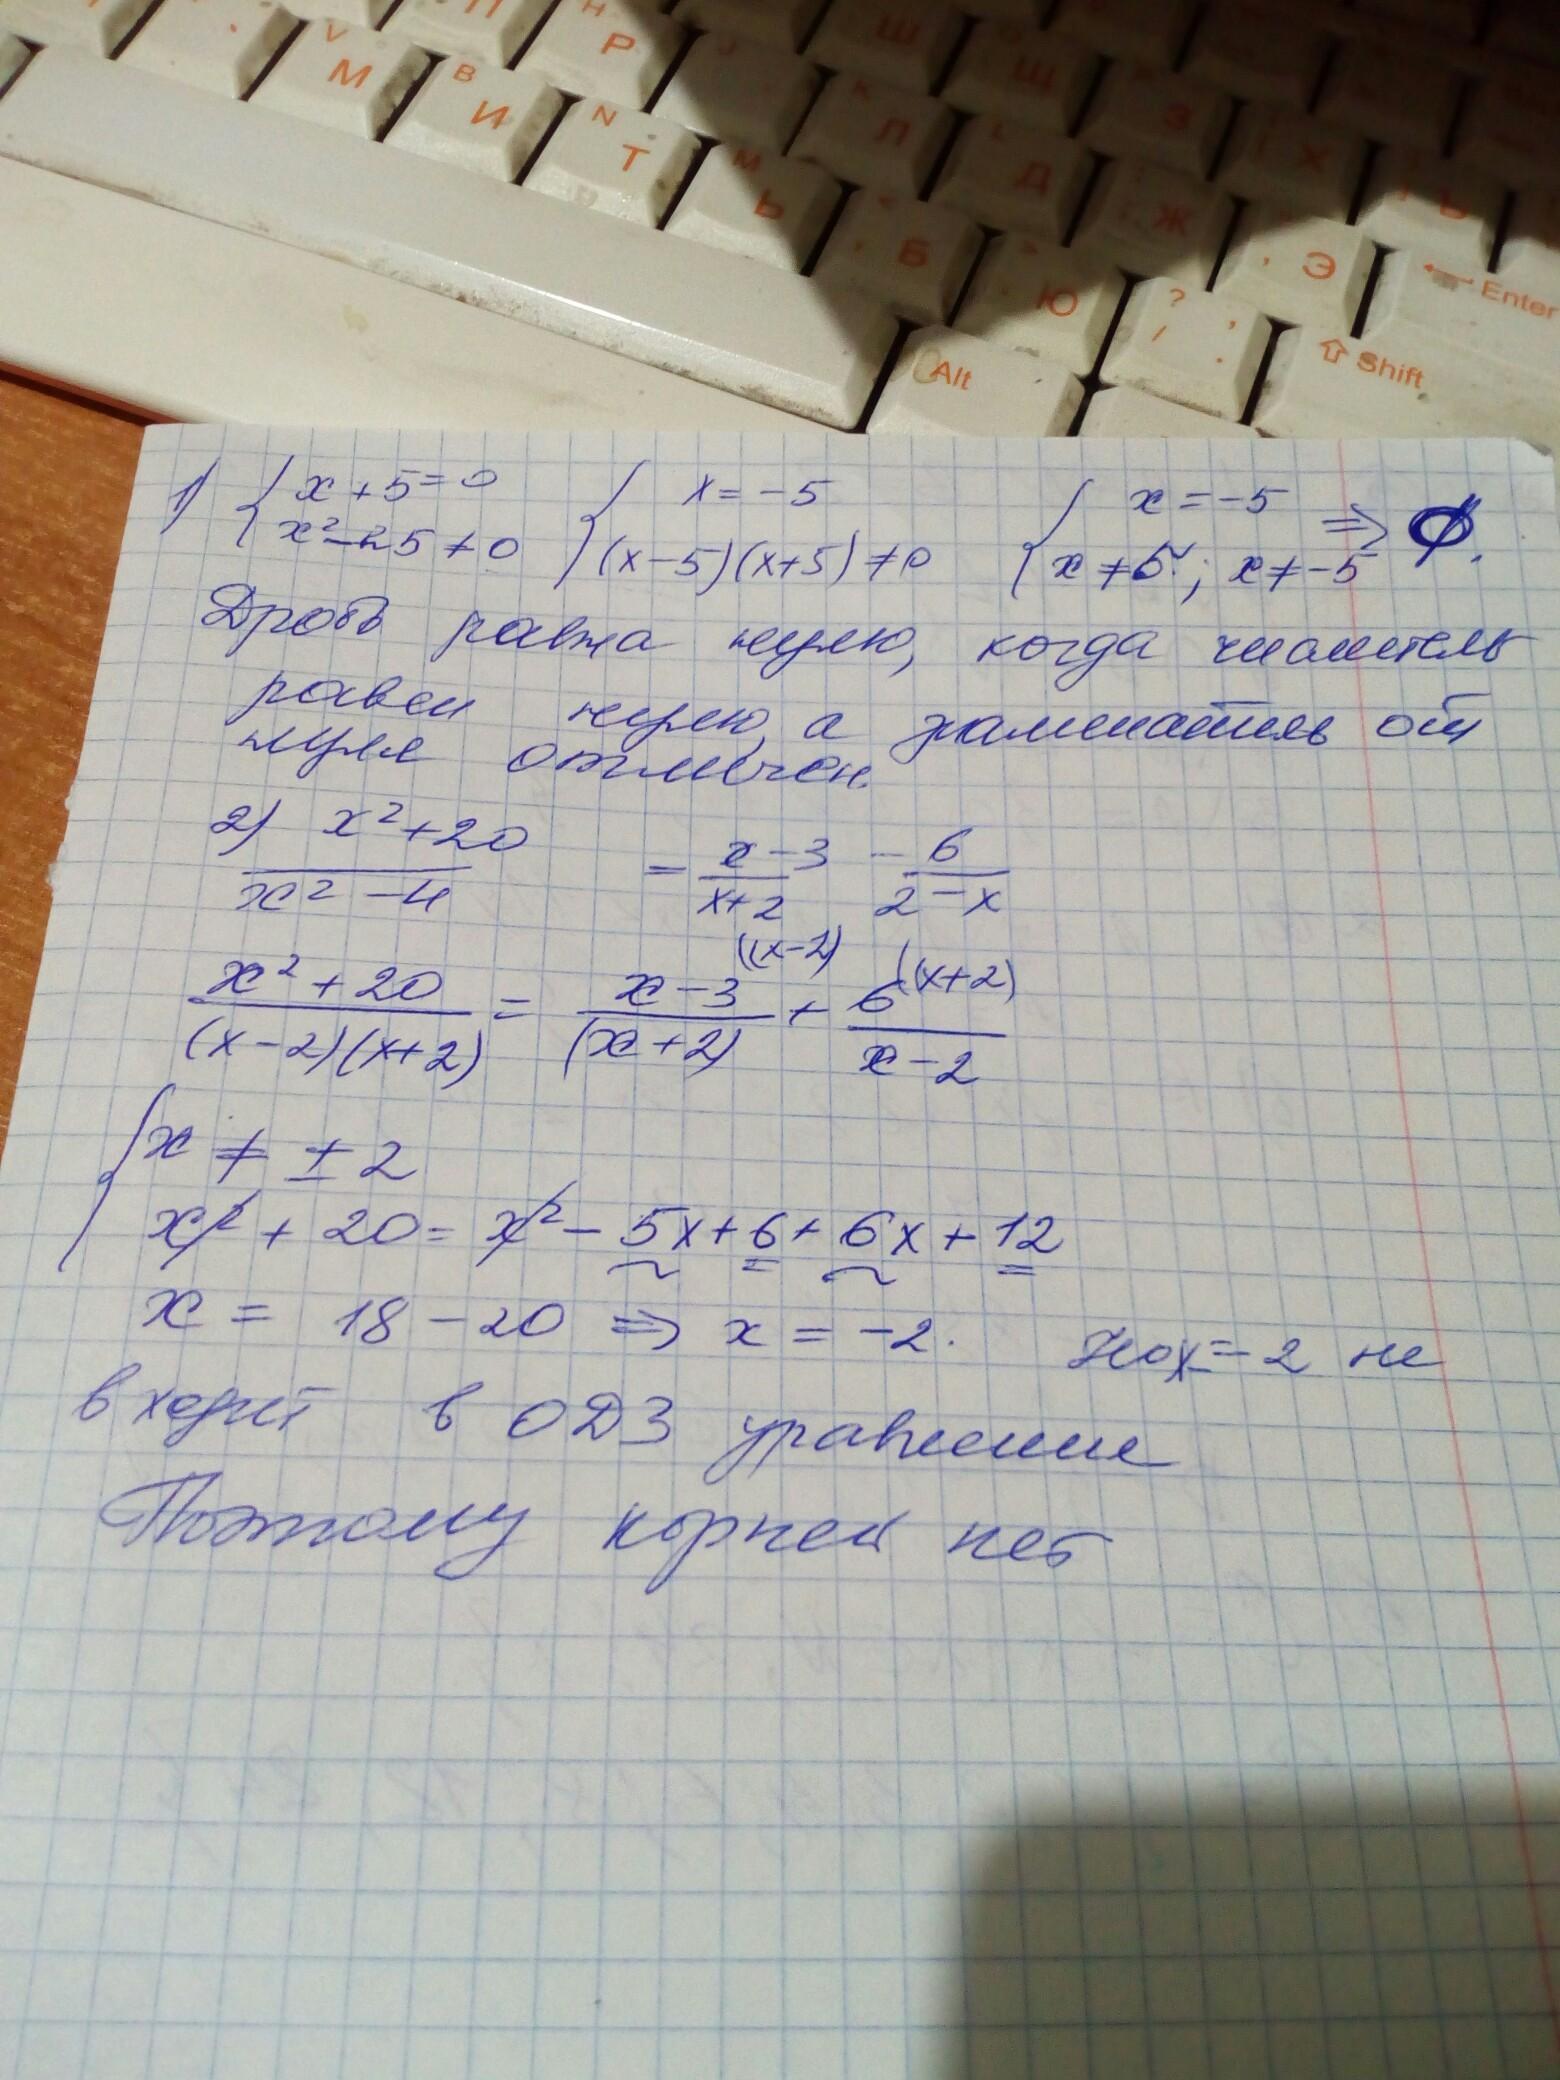 М
V
И
B
Т
N
Р
Н
Ь
М
Б
Ю
Л
К
Д
Ж
Э
Ш
Щ
З
Х
Ъ
?
/
Enter
Alt
Shift
1) { x+5=0 { x=-5 { x=-5 ⇒ ∅.
x²-25≠0 (x-5)(x+5)≠0 x≠5; x≠-5
Дробь равна нулю, когда числитель
равен нулю, а знаменатель от
нуля отличен.
2) x²+20 / x²-4 = x-3 / x+2 - 6 / 2-x
x²+20 / (x-2)(x+2) = x-3 ((x-2) / (x+2) + 6 ((x+2) / x-2
{ x ≠ ±2
x² + 20 = x² - 5x + 6 + 6x + 12
x = 18 - 20 ⇒ x = -2. Но x=-2 не
входит в ОДЗ уравнение
Поэтому корней нет